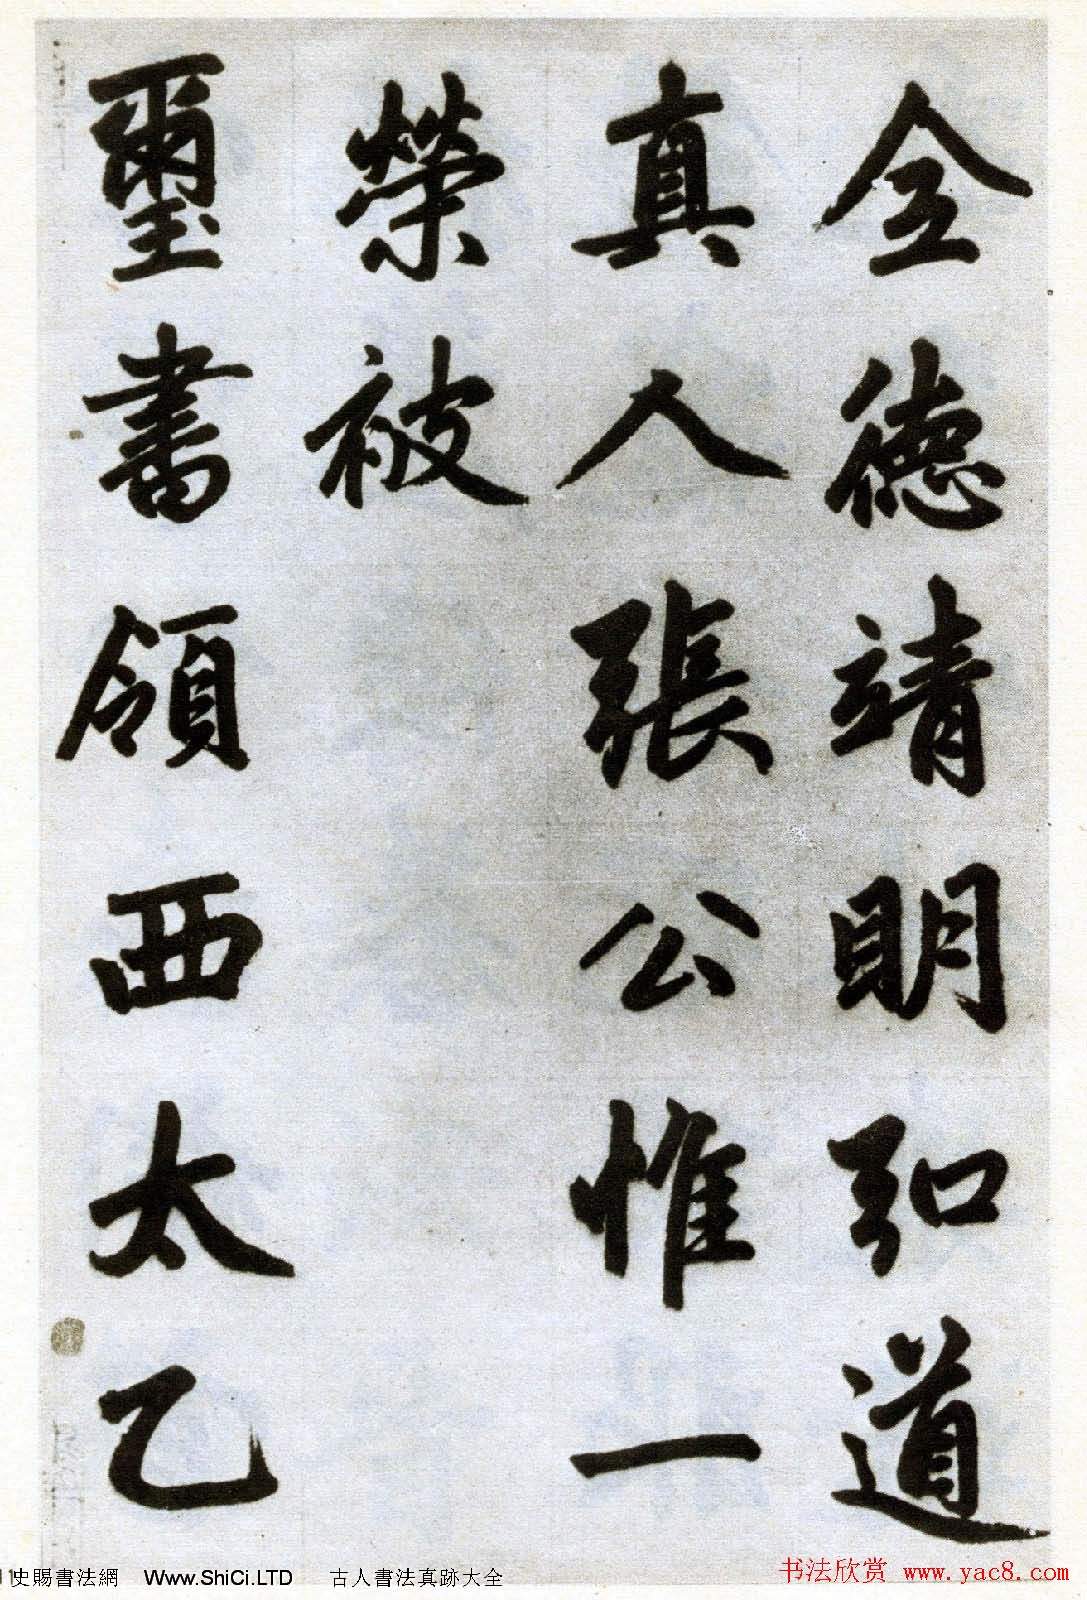 全德靖明弘道
真人張公惟一
榮被
璽書領西太乙
史賜書法網 Www.ShiCi.LTD 古人書法真跡大全
书法欣赏 www.yac8.com